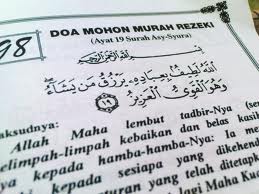 98
DOA MOHON MURAH REZEKI
(Ayat 19 Surah Asy-Syura)
بِسْمِ اللَّهِ الرَّحْمَٰنِ الرَّحِيمِ
اللَّهُ لَطِيفٌ بِعِبَادِهِ يَرْزُقُ مَن يَشَاءُ
وَهُوَ الْقَوِيُّ الْعَزِيزُ ١٩
aksudnya:
Allah Maha lembut tadbir-Nya (se
elimpah-limpah kebaikan dan belas kasih
kepada hamba-hamba-Nya: Ia me
kepada sesiapa yang dikehend
turan yang telah ditetap
Maha Kua